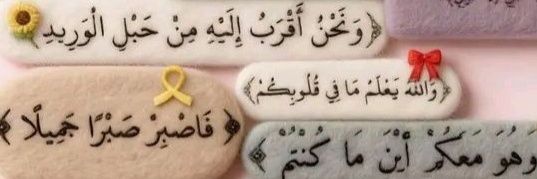 ﴿وَنَحْنُ أَقْرَبُ إِلَيْهِ مِنْ حَبْلِ الْوَرِيدِ﴾
﴿وَاللَّهُ يَعْلَمُ مَا فِي قُلُوبِكُمْ﴾
﴿فَاصْبِرْ صَبْرًا جَمِيلًا﴾
وَهُوَ مَعَكُمْ أَيْنَ مَا كُنْتُمْ﴾